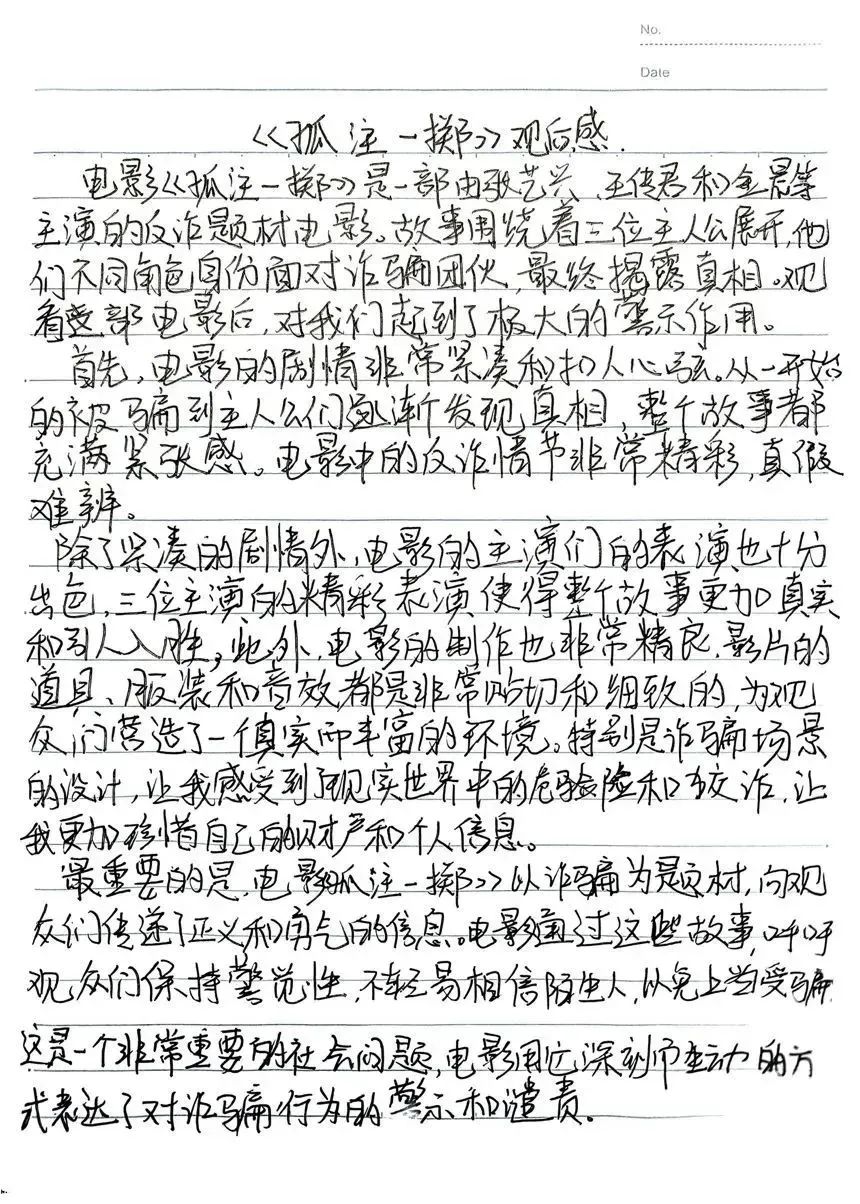 No.
Date
《孤注一掷》观后感.
电影《孤注一掷》是一部由张艺兴、王传君和金晨等
主演的反诈题材电影。故事围绕着三位主人公展开,他
们不同角色身份面对诈骗团伙,最终揭露真相。观
看这部电影后,对我们起到了极大的警示作用。
首先,电影的剧情非常紧凑和扣人心弦。从一开始
的被骗到主人公们逐渐发现真相,整个故事都
充满紧张感。电影中的反诈情节非常精彩,真假
难辨。
除了紧凑的剧情外,电影的主演们的表演也十分
出色,三位主演的精彩表演使得整个故事更加真实
和引人入胜,此外,电影的制作也非常精良.影片的
道具、服装和音效,都是非常贴切和细致的,为观
众们营造了一个真实而丰富的环境。特别是诈骗场景
的设计,让我感受到了现实世界中的危险和狡诈,让
我更加珍惜自己的财产和个人信息。
最重要的是,电影孤注一掷》以诈骗为题材,向观
众们传递了正义和勇气的信息。电影通过这些故事,呼吁
观众们保持警觉性,不轻易相信陌生人,以免上当受骗
这是一个非常重要的社会问题,电影用深刻而生动的方
式表达了对诈骗行为的警示和谴责.